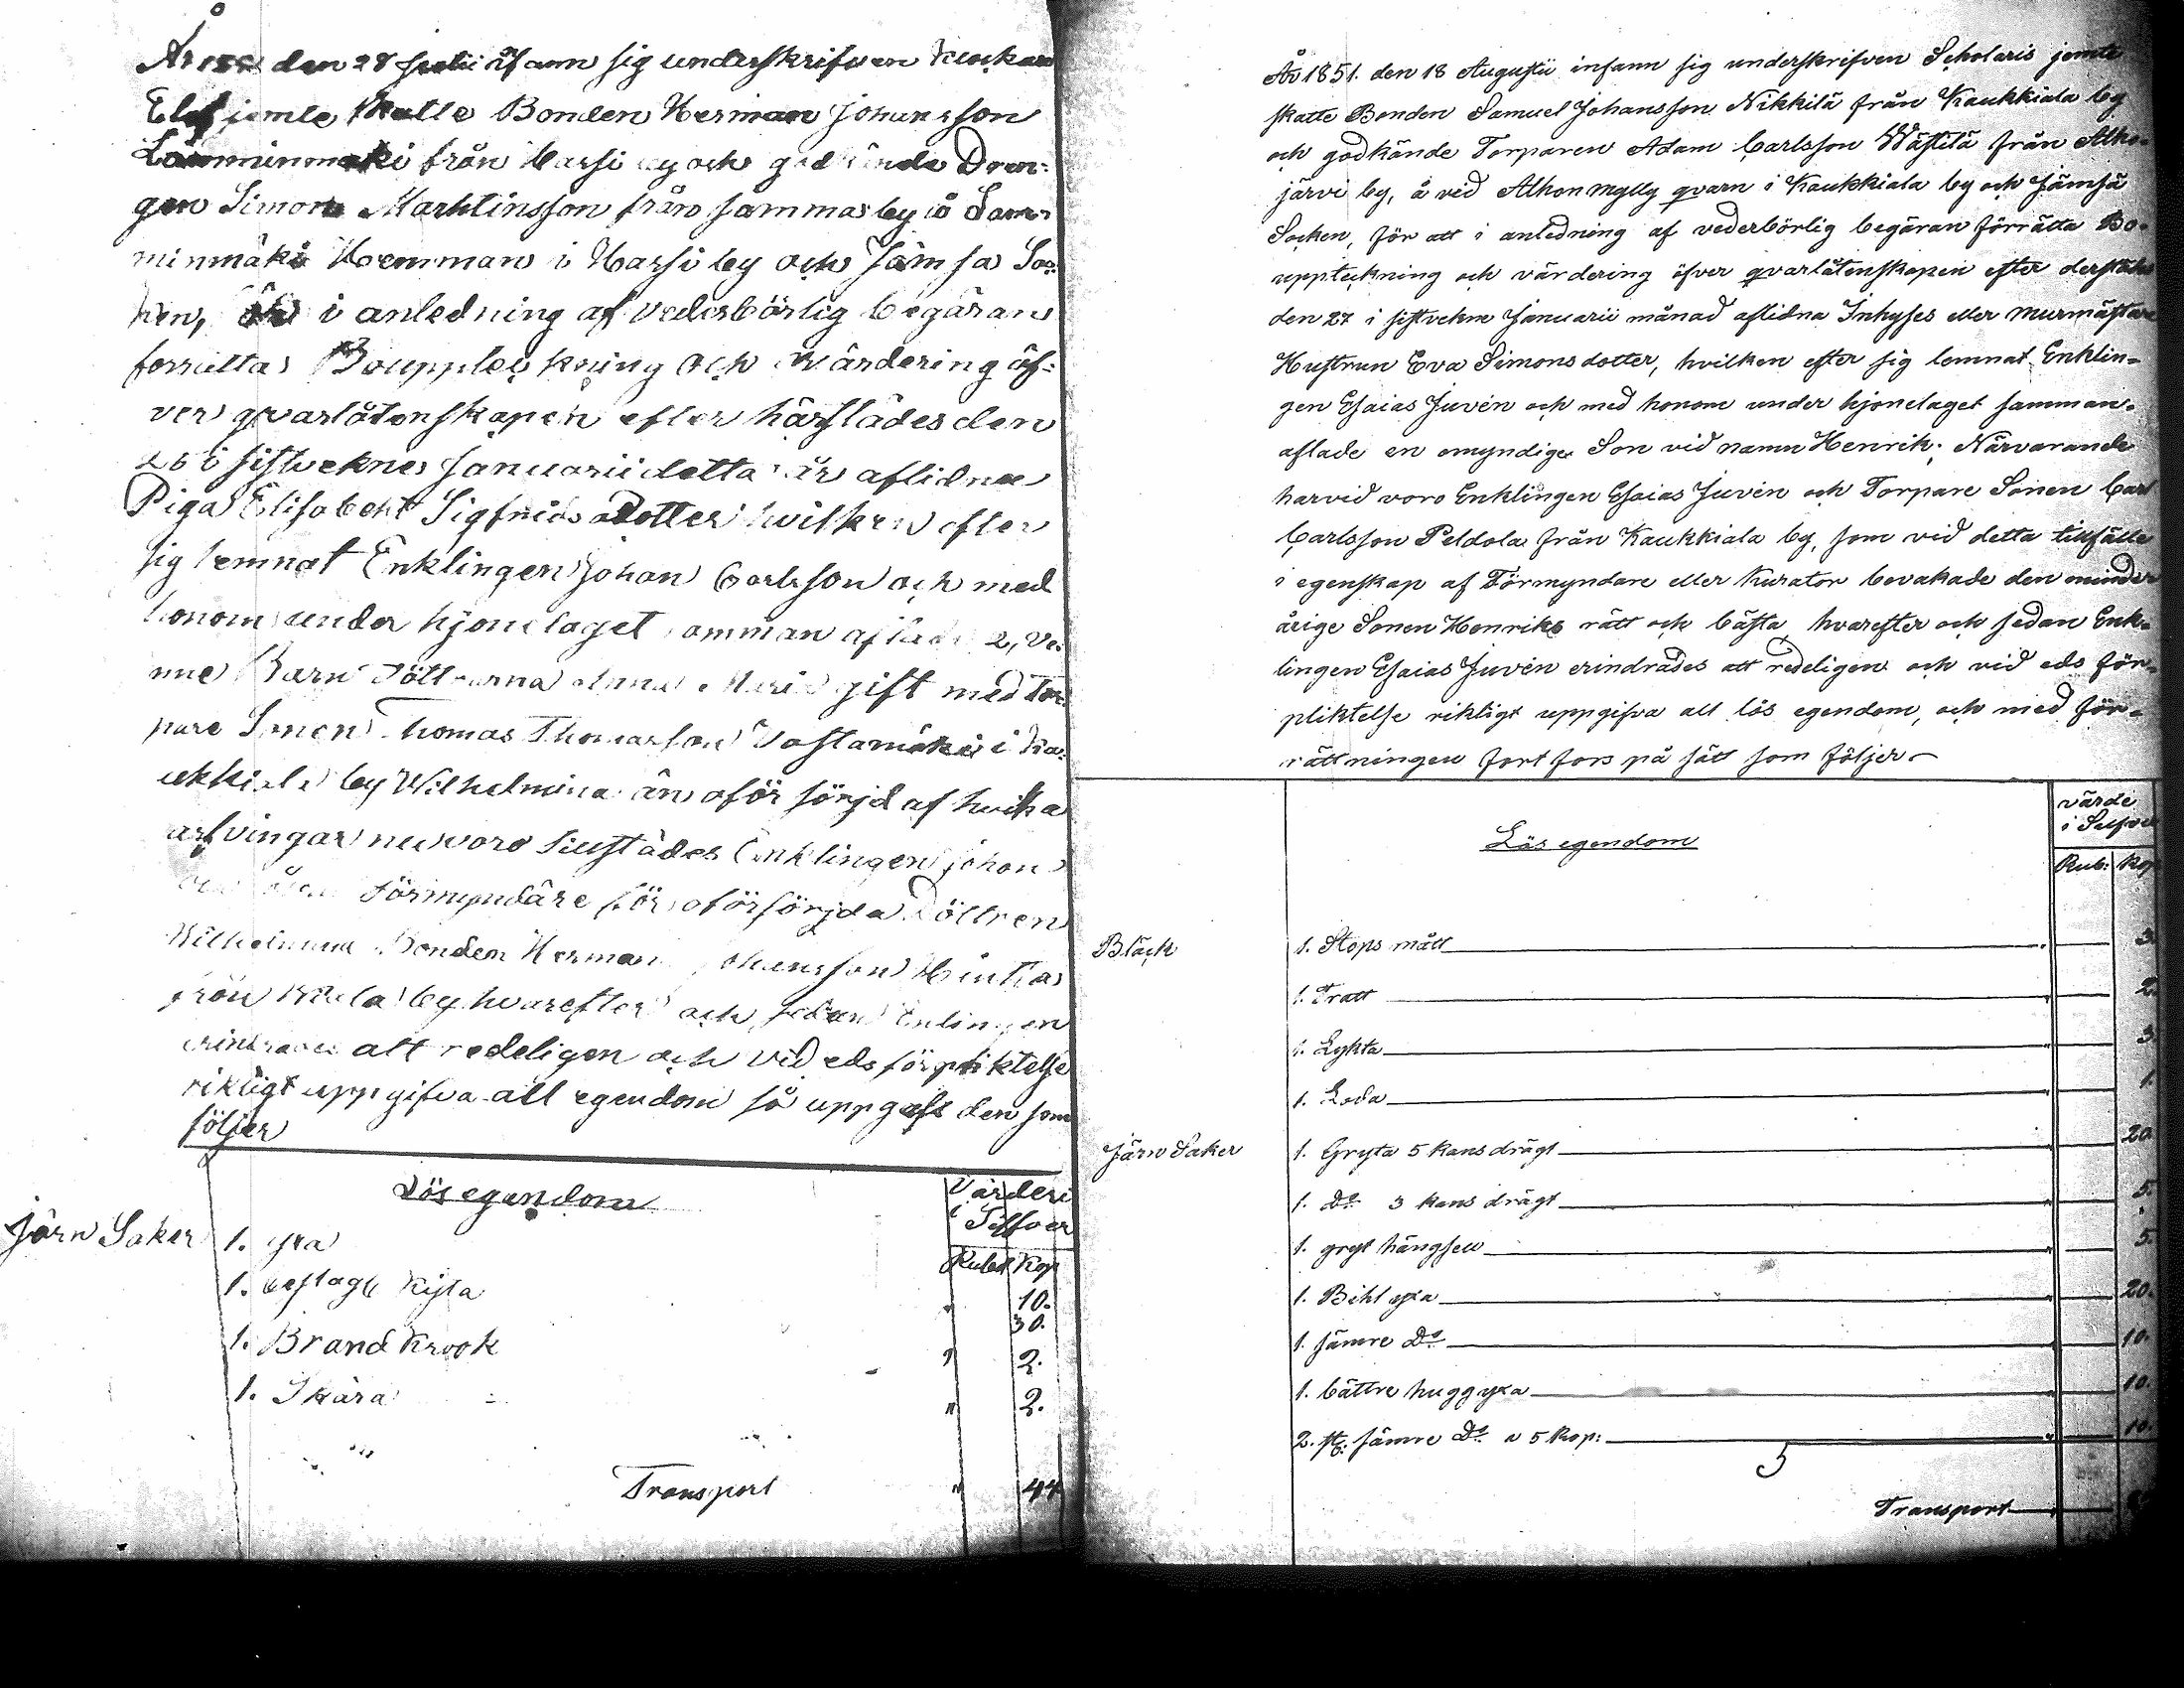 den 28 Julii infann sig underskrifven Kiockare
Elef jemte skatte Bonden Herman Johansson
Lamminmäki från Harsi by och godkände Dren:
gen Simon Marktinsson från samma by å Lam:
minmäki Hemman i Harsi by och Jämsä Soc:
ken, i anledning af vederbörlig begäran
förrätta Bouppteckning och värdering öf:
ver qvarlåtenskapen efter härstädes den
25 i sistvekne Januarii detta år aflidne
Piga Elisabeht Sigfrids Dotter hvilken efter
sig lemnat Enklingen Johan Carlsson och med
honom under hjonelaget samman aflade 2,
Barn Döttrarna Anna Maria gift med Tor:
pare Sonen Thomas Thomasson Vastamäki i Ka:
ukkiala by Wilhelmina än oför sörjd af hvilka
arfvingar nu voro tillstädes Enklingen Johan
Förmyndare för oförsörjda Döttren
Wilhelmina Bonden Herman Johansson Hintia
från by hvarefter och sedan Enlingen
erindrades att redeligen och vid eds förpliktelse
riktigt uppgifva all egendom så uppgafs den som
följer
Lös egendom
Värderi
i Silfver
Rubel Kop
Järn Saker 1. yxa " 10.
1. beslagt Kista 30.
1. Brand Krook " 2.
1. Skära " 2.
Transport " 44
År 1851. den 18 Augustii infann sig underskrifven Scholaris jemte
skatte Bonden Samuel Johansson Nikkilä från Kaukkiala by
och godkände Torparen Adam Carlsson Wästilä från Alho-
järvi by, å vid Alhonmylly qvarn i Kaukkiala by och Jämsä
Socken, för att i anledning af vederbörlig begäran förrätta Bo-
uppteckning och värdering öfver qvarlåtenskapen efter derstädes
den 27 i sistvekne Januarii månad aflidna Inhyses eller murmästare
Hustrun Eva Simonsdotter, hvilken efter sig lemnat Enklin-
gen Esaias Juvén och med honom under hjonelaget samman-
aflade en omyndige Son vid namn Henrik; Närvarande
harvid voro Enklingen Esaias Juvén och Torpare Sonen Carl
Carlsson Peldola från Kaukkiala by, som vid detta tillfälle
i egenskap af Förmyndare eller Kurator bevakade den minder
årige Sonen Henriks rätt och bästa, hvarefter och sedan Enk-
lingen Esaias Juvén erindrades att redeligen och vid eds för-
pliktelse riktigt uppgifva all lös egendom, och med för-
rättningen fort fors på sätt som följer-
Lös egendom
värde
i Silfver
Rub: Kop
Bläck 1. Stops mått " 3.
1. Tratt " 2.
1. Lykta " 3.
1. Loda " 1.
Järn Saker 1. Gryta 5 kans drägt " 20.
1. Do 3 kans drägt " 5.
1. gryt hängsell " 5.
1. Bihl yxa " 20.
1. sämre Do " 10.
1. bättre huggyxa " 10.
2. st: sämre Do a 5 Kop: " 10.
Transport